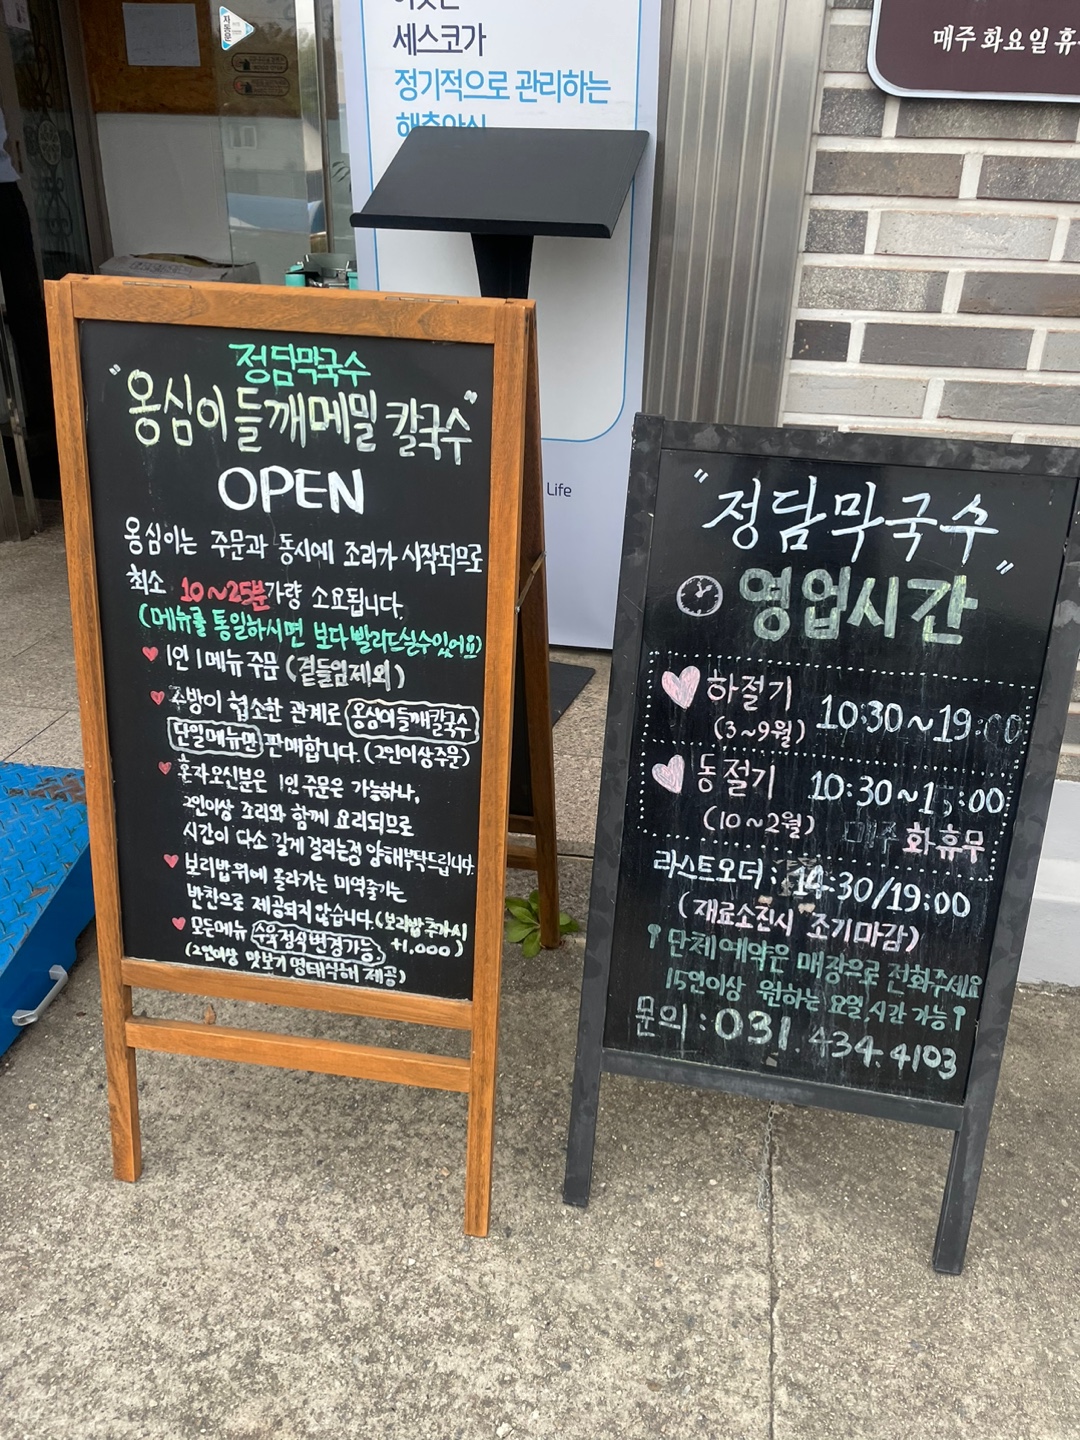 세스코가
정기적으로 관리하는
해충안심
Life
매주 화요일 휴
자동문
정담막국수
"옹심이 들깨메밀 칼국수"
OPEN
옹심이는 주문과 동시에 조리가 시작되므로
최소 10~25분가량 소요됩니다.
(메뉴를 통일하시면 보다 빨리드실수있어요)
1인 1메뉴 주문 (곁들임제외)
주방이 협소한 관계로 옹심이들깨칼국수
단일메뉴만 판매합니다. (2인이상주문)
혼자오신분은 1인 주문은 가능하나,
2인이상 조리와 함께 요리되므로
시간이 다소 길게 걸리는점 양해부탁드립니다.
보리밥위에 올라가는 미역줄기는
반찬으로 제공되지 않습니다. (보리밥추가시
모든메뉴 수육정식변경가능. +1,000)
(2인이상 맛보기 명태식해 제공)
"정담막국수"
영업시간
하절기 10:30~19:00
(3~9월)
동절기 10:30~1 :00
(10~2월) 매주 화휴무
라스트오더 : 14:30/19:00
(재료소진시 조기마감)
단체예약은 매장으로 전화주세요
15인이상 원하는 요일,시간 가능
문의 : 031. 434. 4103